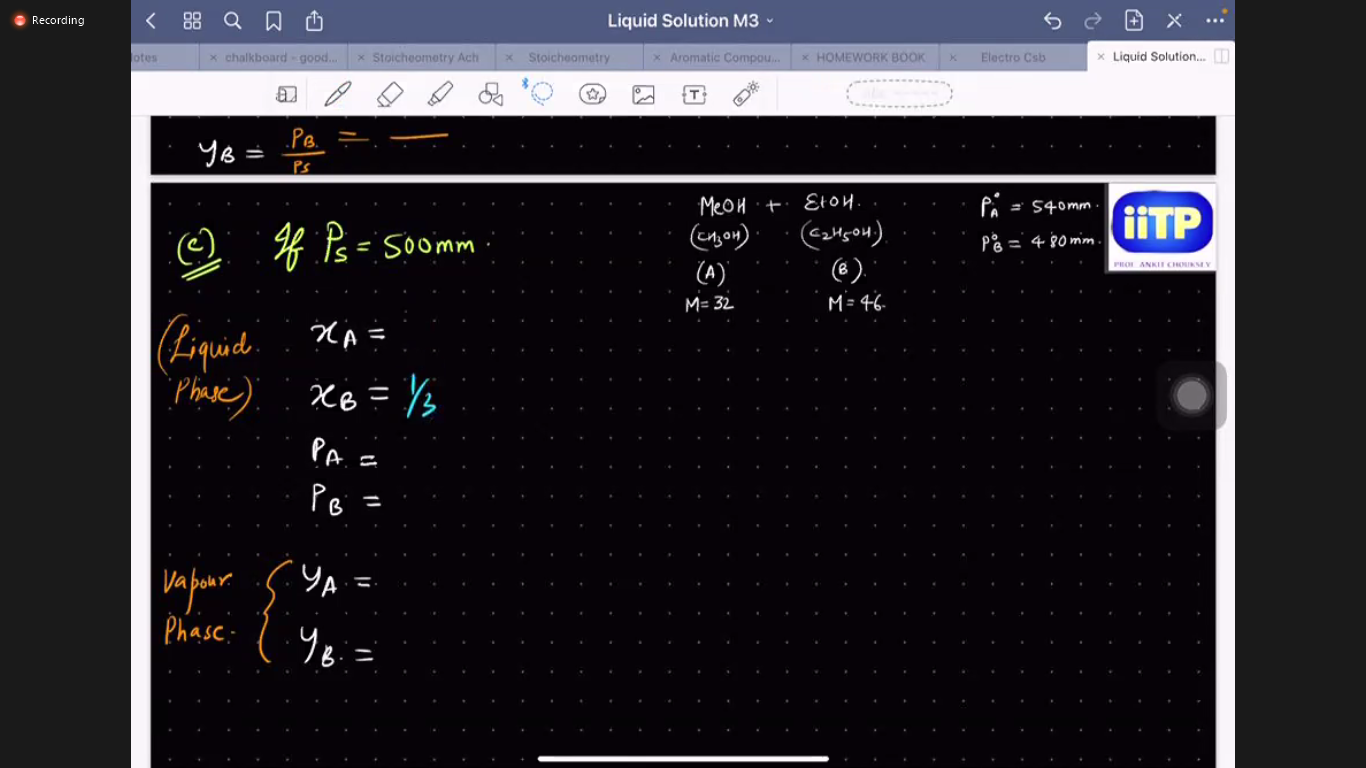 Recording
Liquid Solution M3
lotes
chalkboard - good...
Stoicheometry Ach
Stoicheometry
Aromatic Compou...
HOMEWORK BOOK
Electro Csb
Liquid Solution...
yB = PB/Ps = —
(c) If Ps = 500mm.
MeOH + EtOH.
(CH3OH) (C2H5OH)
(A) (B)
M=32 M=46.
P°A = 540mm.
P°B = 480mm.
iiTP
PROF. ANKIT CHOUKSEY
(Liquid Phase)
xA =
xB = 1/3
PA =
PB =
Vapour Phase.
yA =
yB. =